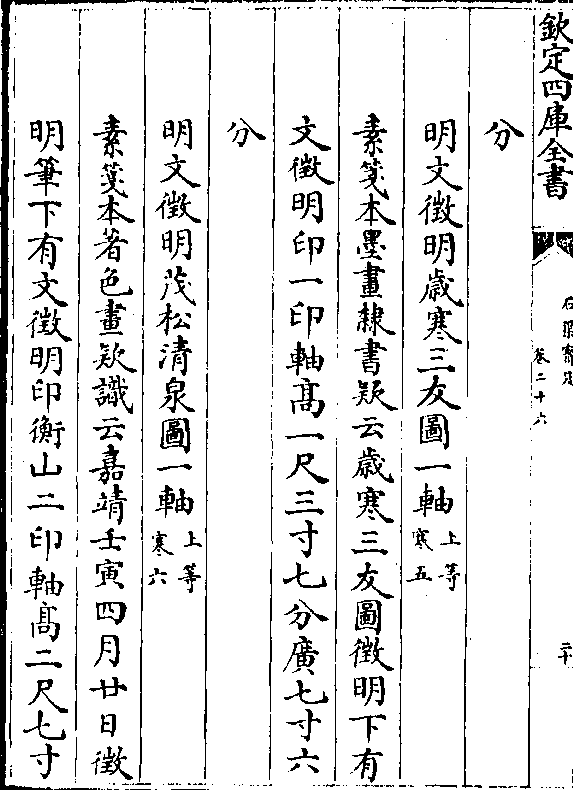 欽定四庫全書
石渠寳笈
卷二十六
二十
分
明文徵明歲寒三友圖一軸 上等 寒五
素箋本墨畫隸書款云歲寒三友圖徵明下有
文徵明印一印軸髙一尺三寸七分廣七寸六
分
明文徵明茂松清泉圖一軸 上等 寒六
素箋本著色畫款識云嘉靖壬寅四月廿日徵
明筆下有文徵明印衡山二印軸髙二尺七寸